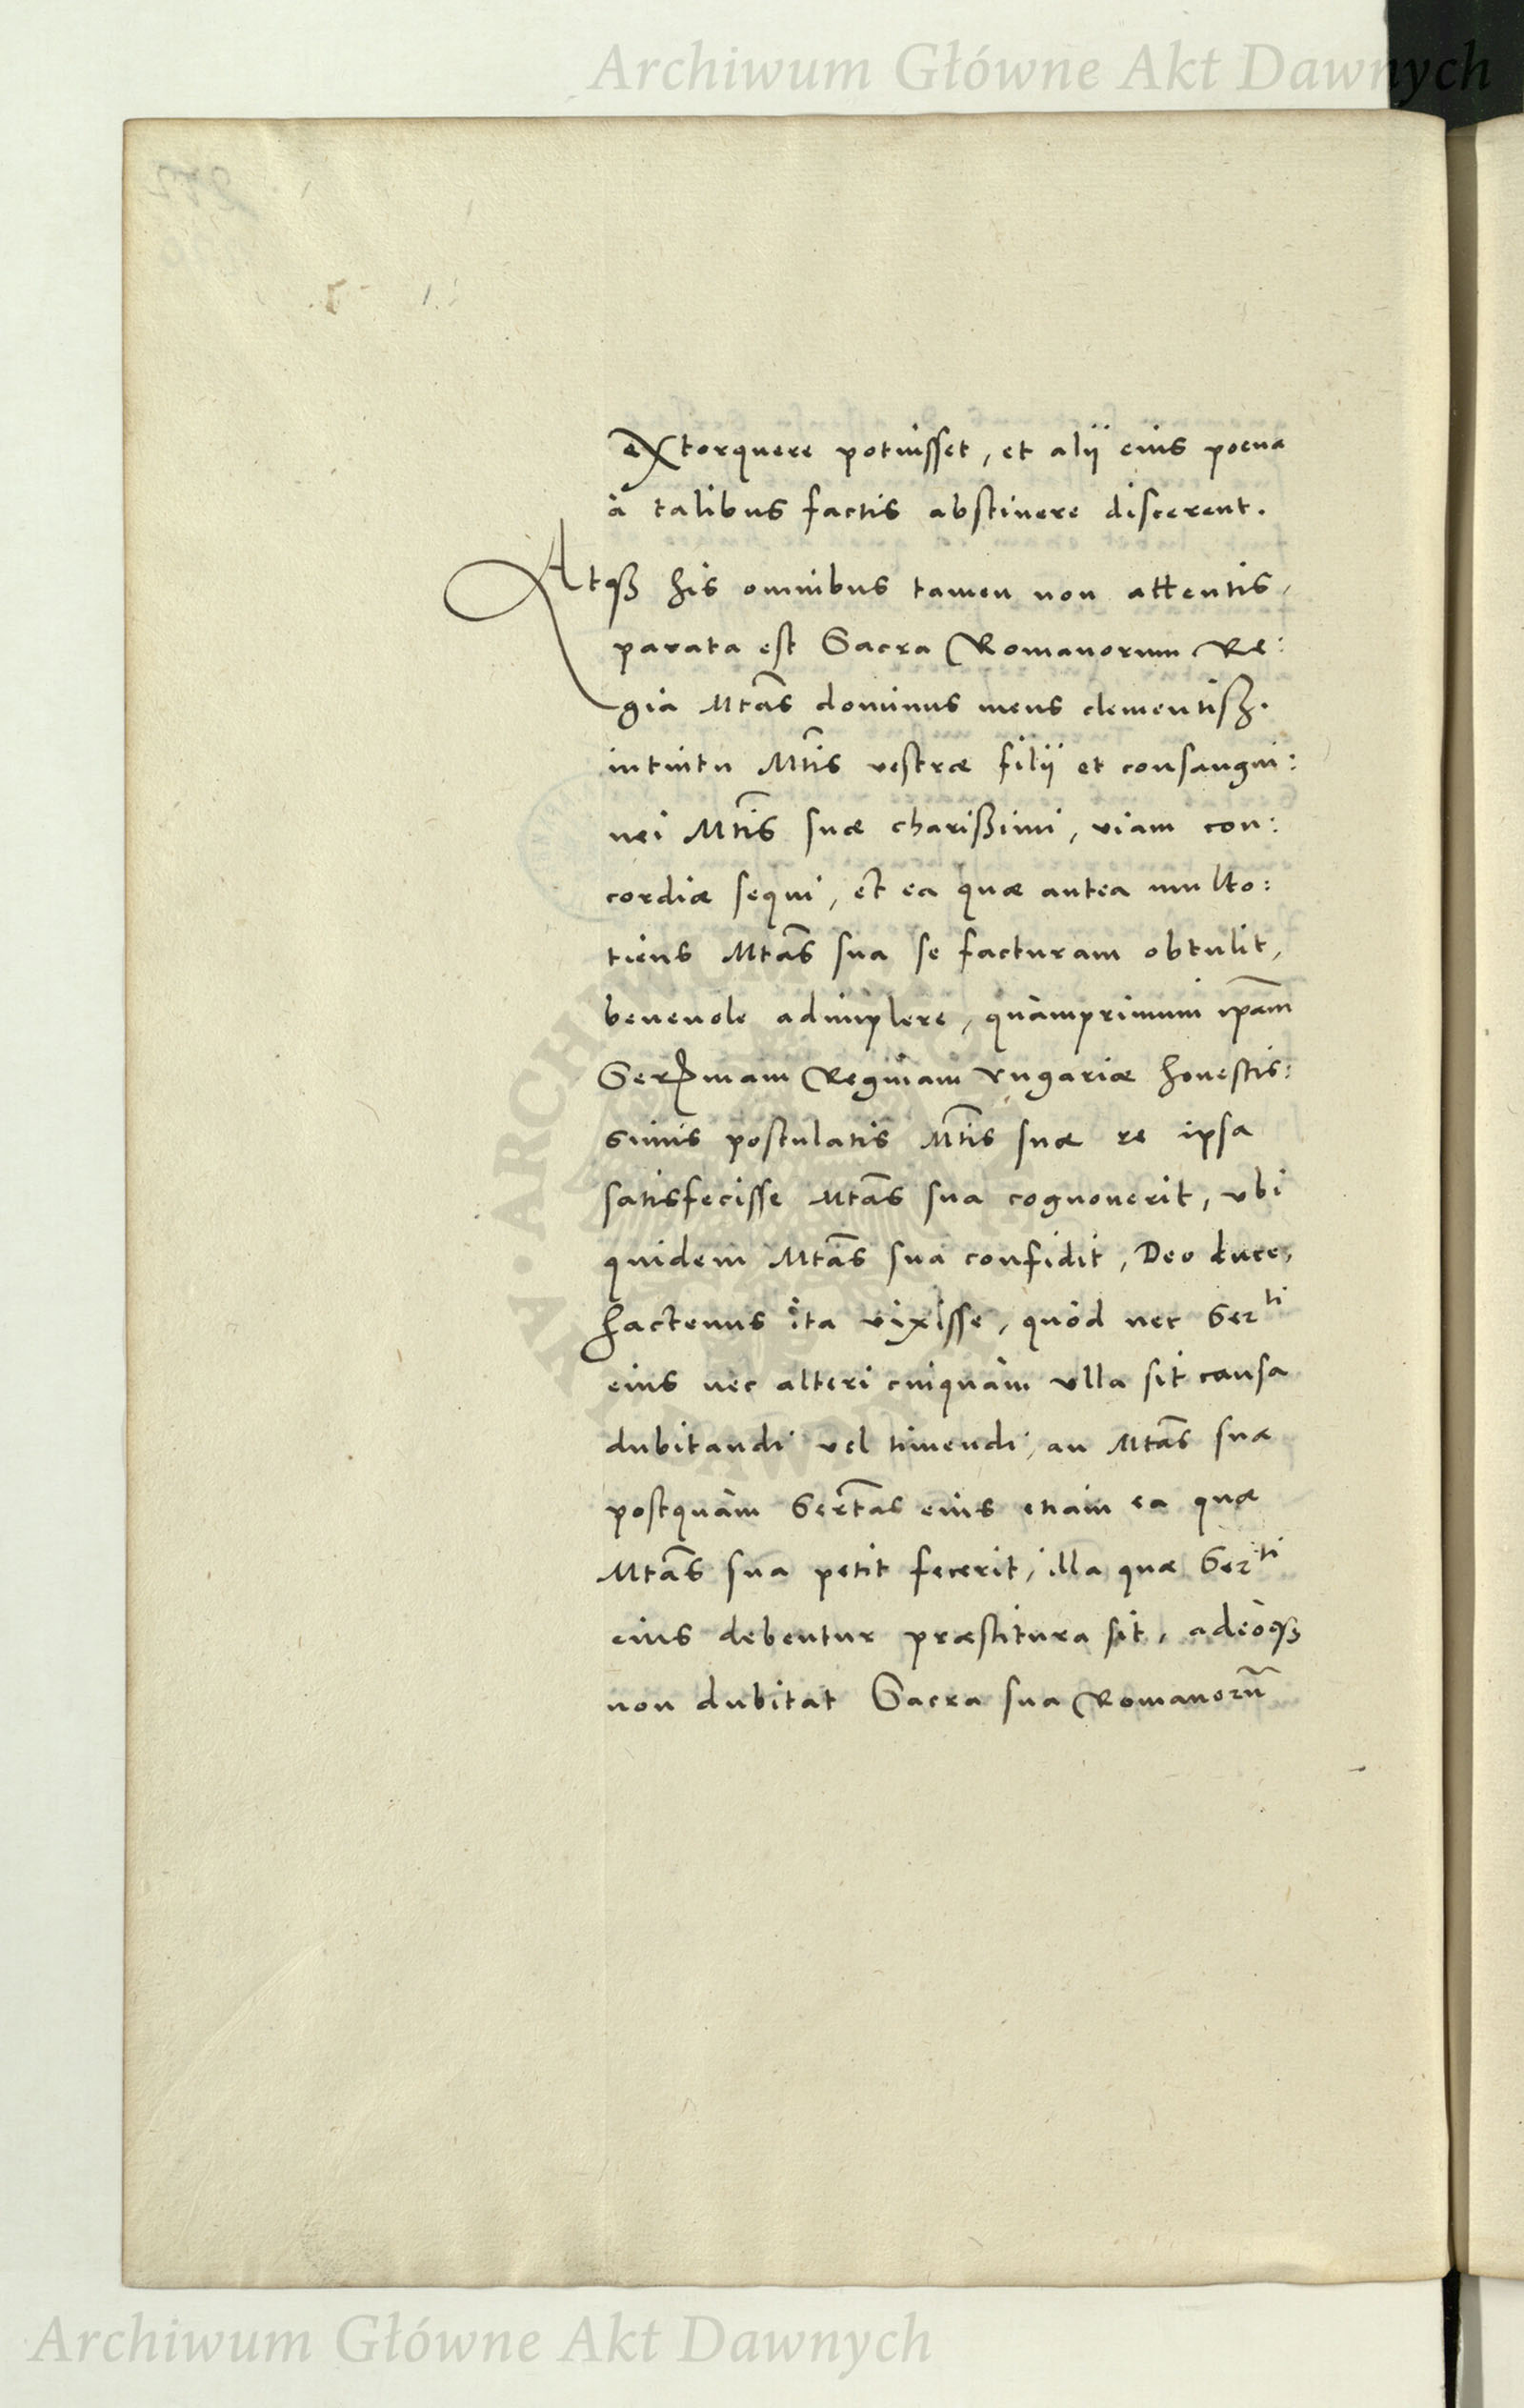 Archiwum Główne Akt Dawnych
extorquere potuisset, et alij eius poena
à talibus factis abstinere discerent.
Atqꝫ his omnibus tamen non attentis,
parata est Sacra Romanorum Re:
gia Mtas dominus meus clementiss.
intuitu Mtis vestræ filij et consangui:
nei Mtis suæ charissimi, viam con:
cordiæ sequi, et ea quæ antea multo:
tiens Mtas sua se facturam obtulit,
benevole adimplere, quàmprimum ipam
Sermam Reginam Vngariæ honestis:
simis postulatis Mtis suæ re ipsa
satisfecisse Mtas sua cognouerit, vbi
quidem Mtas sua confidit, Deo duce,
hactenus ita vixisse, quòd nec Serti
eius nec alteri cuiquam vlla sit causa
dubitandi vel timendi, an Mtas sua
postquàm Sertas eius etiam ea quæ
Mtas sua petit fecerit, illa quæ Serti
eius debentur præstitura sit, adeòqꝫ
non dubitat Sacra sua Romanorũ
Archiwum Główne Akt Dawnych